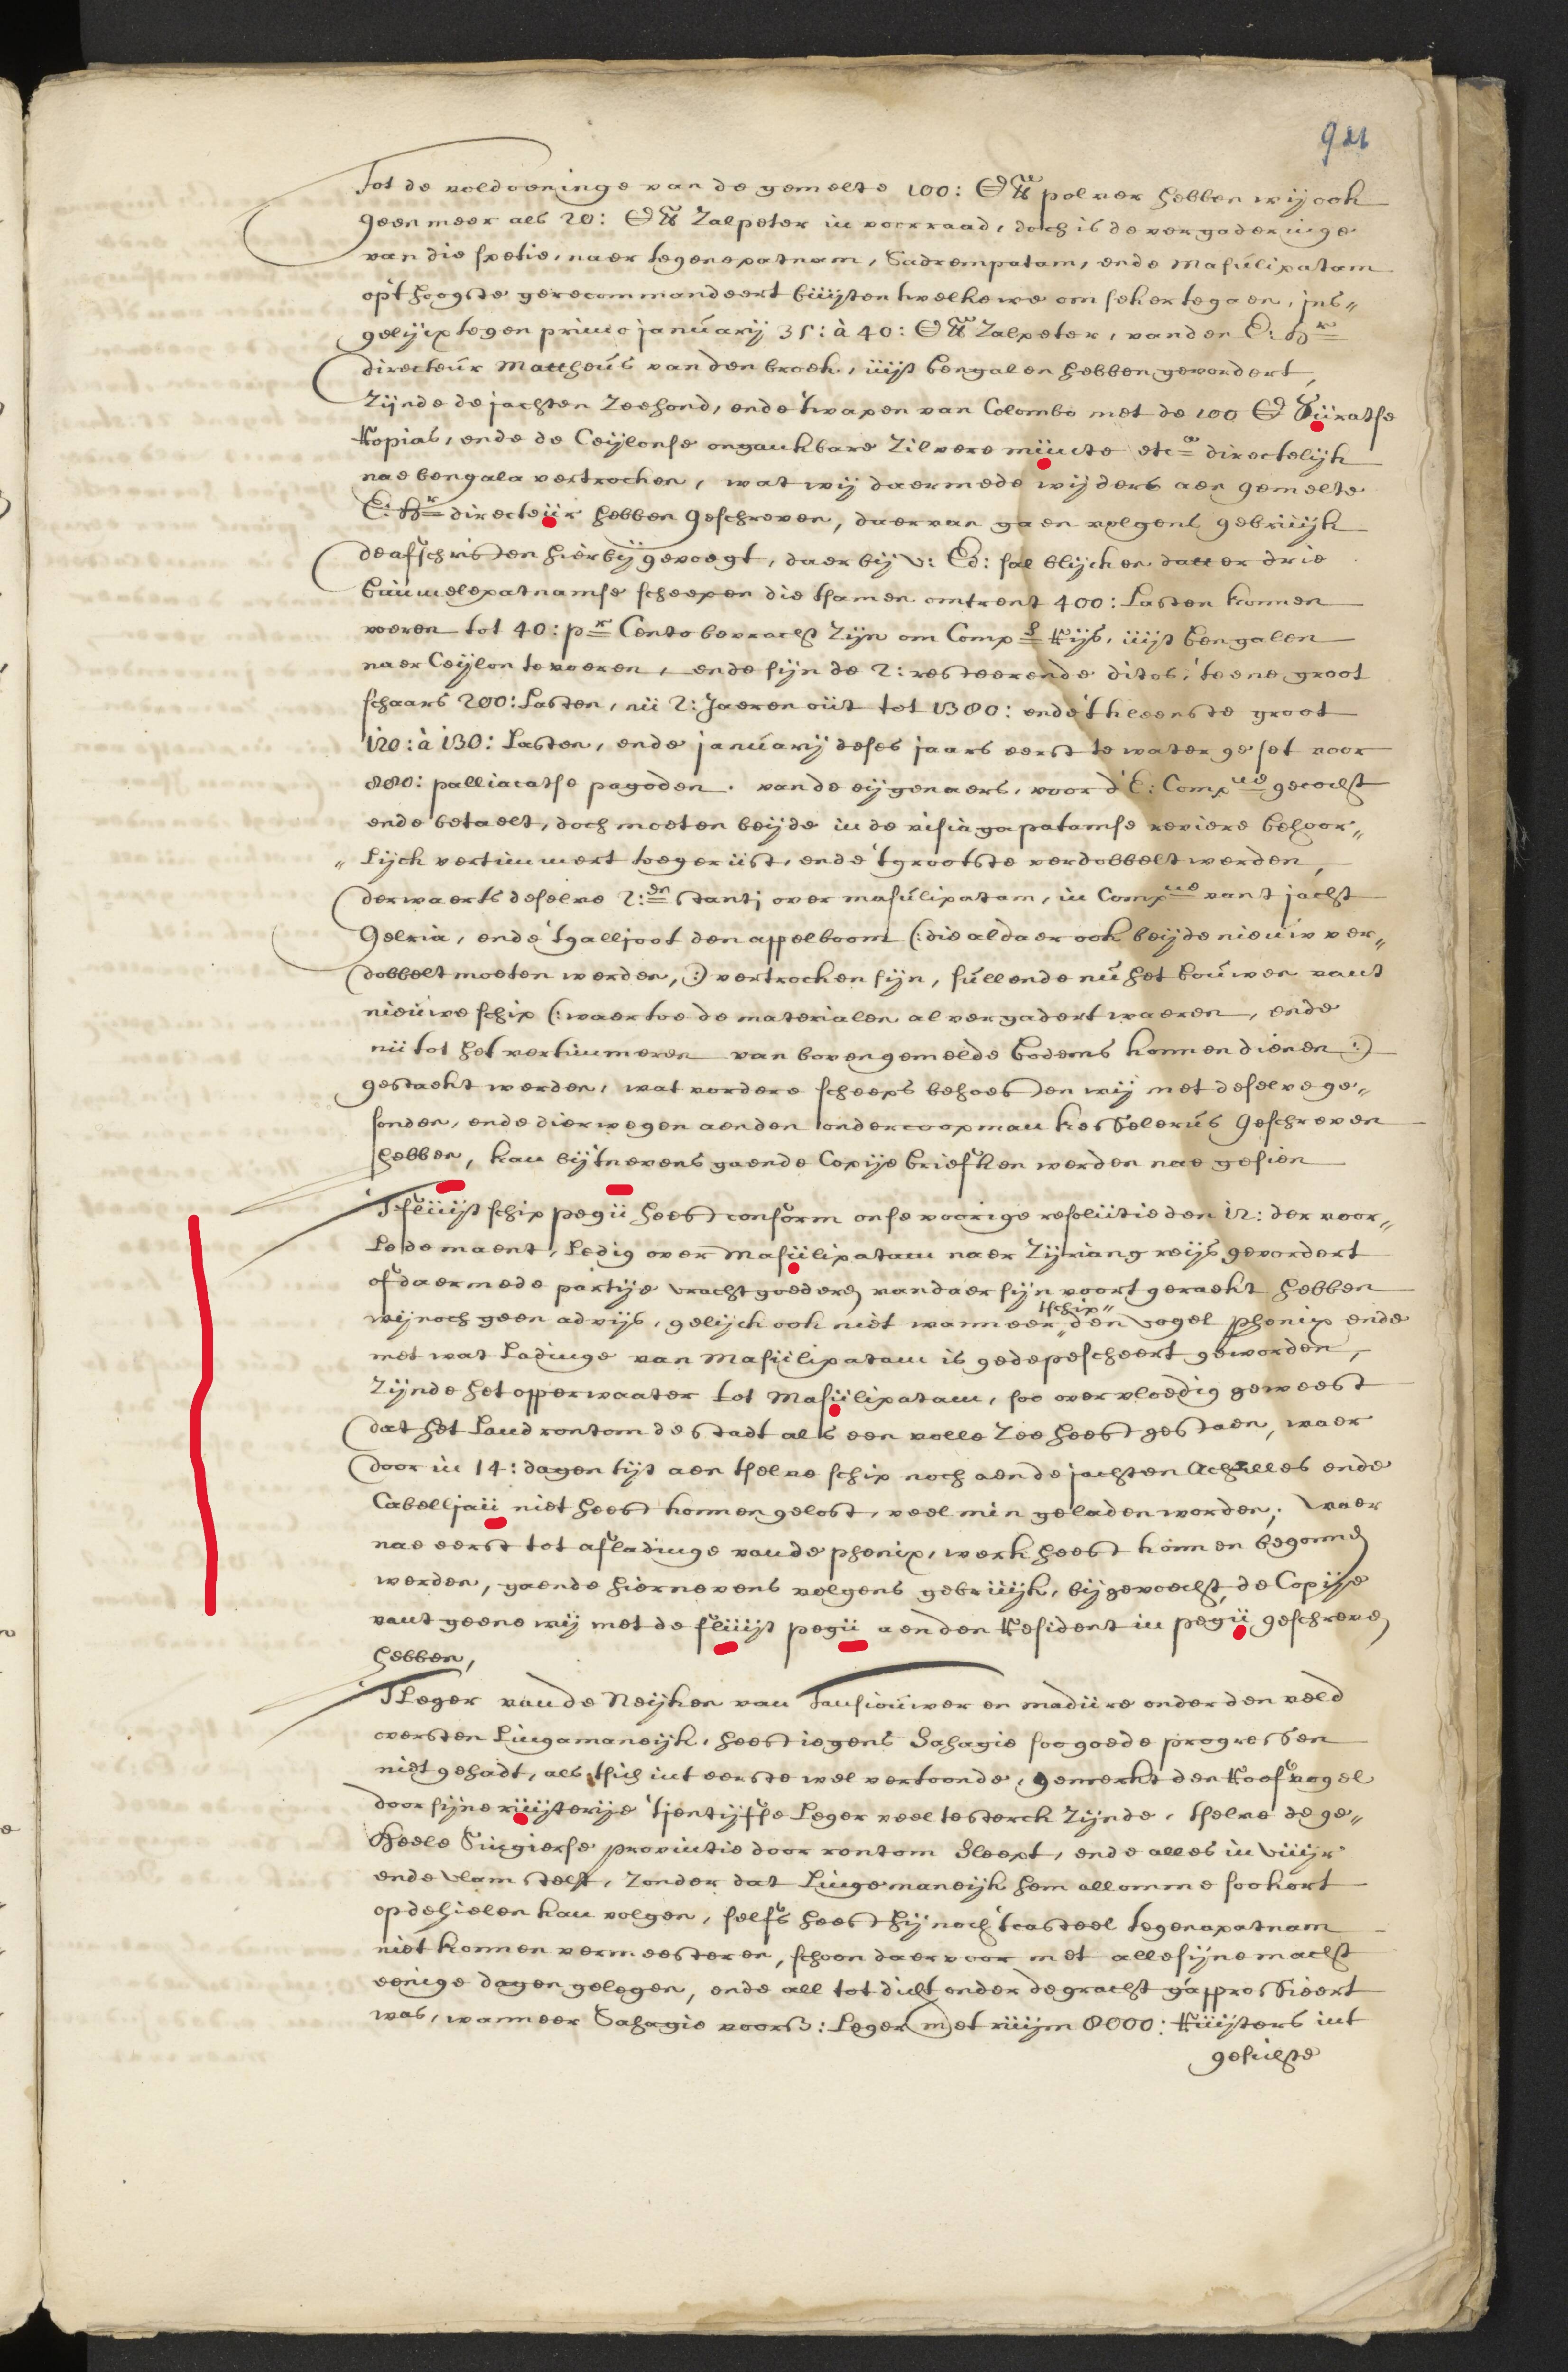 921
Tot de voldoeninge van de gemelte 100: polver hebben wij ook
geen meer als 20: Zalpeter in voorraad, doch is de vergaderinge
van die spetie, naer tegenepatnam, Sadrempatam, ende Masulipatam
op't hoogste gerecommandeert buijten hwelke we om seker te gaen, jns„
gelijcx tegen primo januarij 35: à 40: Zalpeter, van den E: Hr
directeúr Mattheús van den broek, uijt bengalen hebben gevordert,
Zijnde de jachten Zeehond, ende 't wapen van Colombo met de 100 Suratse
Ropias, ende de Ceijlonse ongankbare Zilvere munte etca directelijk
nae bengala vertrocken, wat wij daermede wijders aen gemelte
E: Hr directeür hebben geschreven, daervan gaen volgens gebruijk
de afschriften hier bij gevoegt, daer bij v: Ed: sal blijcken datter drie
bimmelepatnamse scheepen die tsamen omtrent 400: Lasten konnen
voeren tot 40: pr Cento bevracht Zijn om Comps Rijs, uijt bengalen
naer Ceijlon te voeren, ende sijn de 2: resteerende ditos, 't eene groot
schaars 200: Lasten, nu 2: Jaeren out tot 1300: ende 't kleenste groot
120: à 130: Lasten, ende januarij deses jaars eerst te water geset voor
880: palliacatse pagoden. van de eijgenaers, voor d'E: Compnie gecocht
ende betaelt, doch moeten beijde in de visiagapatamse reviere behoor„
„lijck vertimmert toegerust, ende 't grootste verdobbelt werden,
derwaerts deselve 2:en stantj over masulipatam, in Compnie van 't jacht
Gelria, ende 't galljoot den appelboom (: die aldaer ook beijde nieuw ver„
dobbelt moeten werden, :) vertrocken sijn, sullende nu het bouwen vant
nieuwe schip (: waer toe de materialen al vergadert waeren, ende
nu tot het vertimmeren van bovengemelde bodems konnen dienen :)
gestaekt werden, wat vordere scheeps behoeften wij met deselve ge„
sonden, ende dierwegen aenden ondercoopman kesselerus geschreven
hebben, kan bij tnevens gaende Copije briefken werden nae gesien
T'fluijt schip pegu heeft conform onse voorige resolutie den 12: der voor„
Lede maent, Ledig over Masulipatam naer Zijriang reijs gevordert
of daermede partije vrachtgoederen vandaer sijn voort geraekt hebben
wij noch geen advijs, gelijck ook niet wanneer „tschip„ den vogel phenix ende
met wat Ladinge van Masulipatam is gedepescheert geworden,
Zijnde het opperwaater tot Masulipatam, soo overvloedig geweest
dat het Land rontom de stadt als een volle Zee heeft gestaen, waer
door in 14: dagen tijt aen tselve schip noch aen de jachten Achilles ende
Cabelljau niet heeft konnen gelost, veel min geladen worden; Waer
nae eerst tot afladinge van de phenix, werk heeft konnen begonnen
werden, gaende hiernevens volgens gebruijk, bijgevoecht, de Copije
van t geene wij met de fluijt pegu aenden Resident in pegu geschreven
hebben,
T'Leger van de Neijken van Tansiouwer en madure onder den veld
oversten Lingamaneijk, heeft iegens Sahagie soo goede progressen
niet gehadt, als tsich int eerste wel vertoonde, gemerkt den Roofvogel
door sijne ruijterije 'tjentijffse Leger veel te sterck Zijnde, tselve de ge„
heele Singierse provintie door rontom sleept, ende alles in vuijr
ende vlam stelt, Zonder dat Lingemaneijk hem allomme soo kort
op de hielen kan volgen, selfs heeft hij noch 't casteel tegenapatnam
niet konnen vermeesteren, schoon daervoor met alle sijne macht
eenige dagen gelegen, ende all tot dicht onder de gracht g'approssieert
was, wanneer Sahagie voorsz: Leger met ruijm 8000: Ruijters int
gesichte